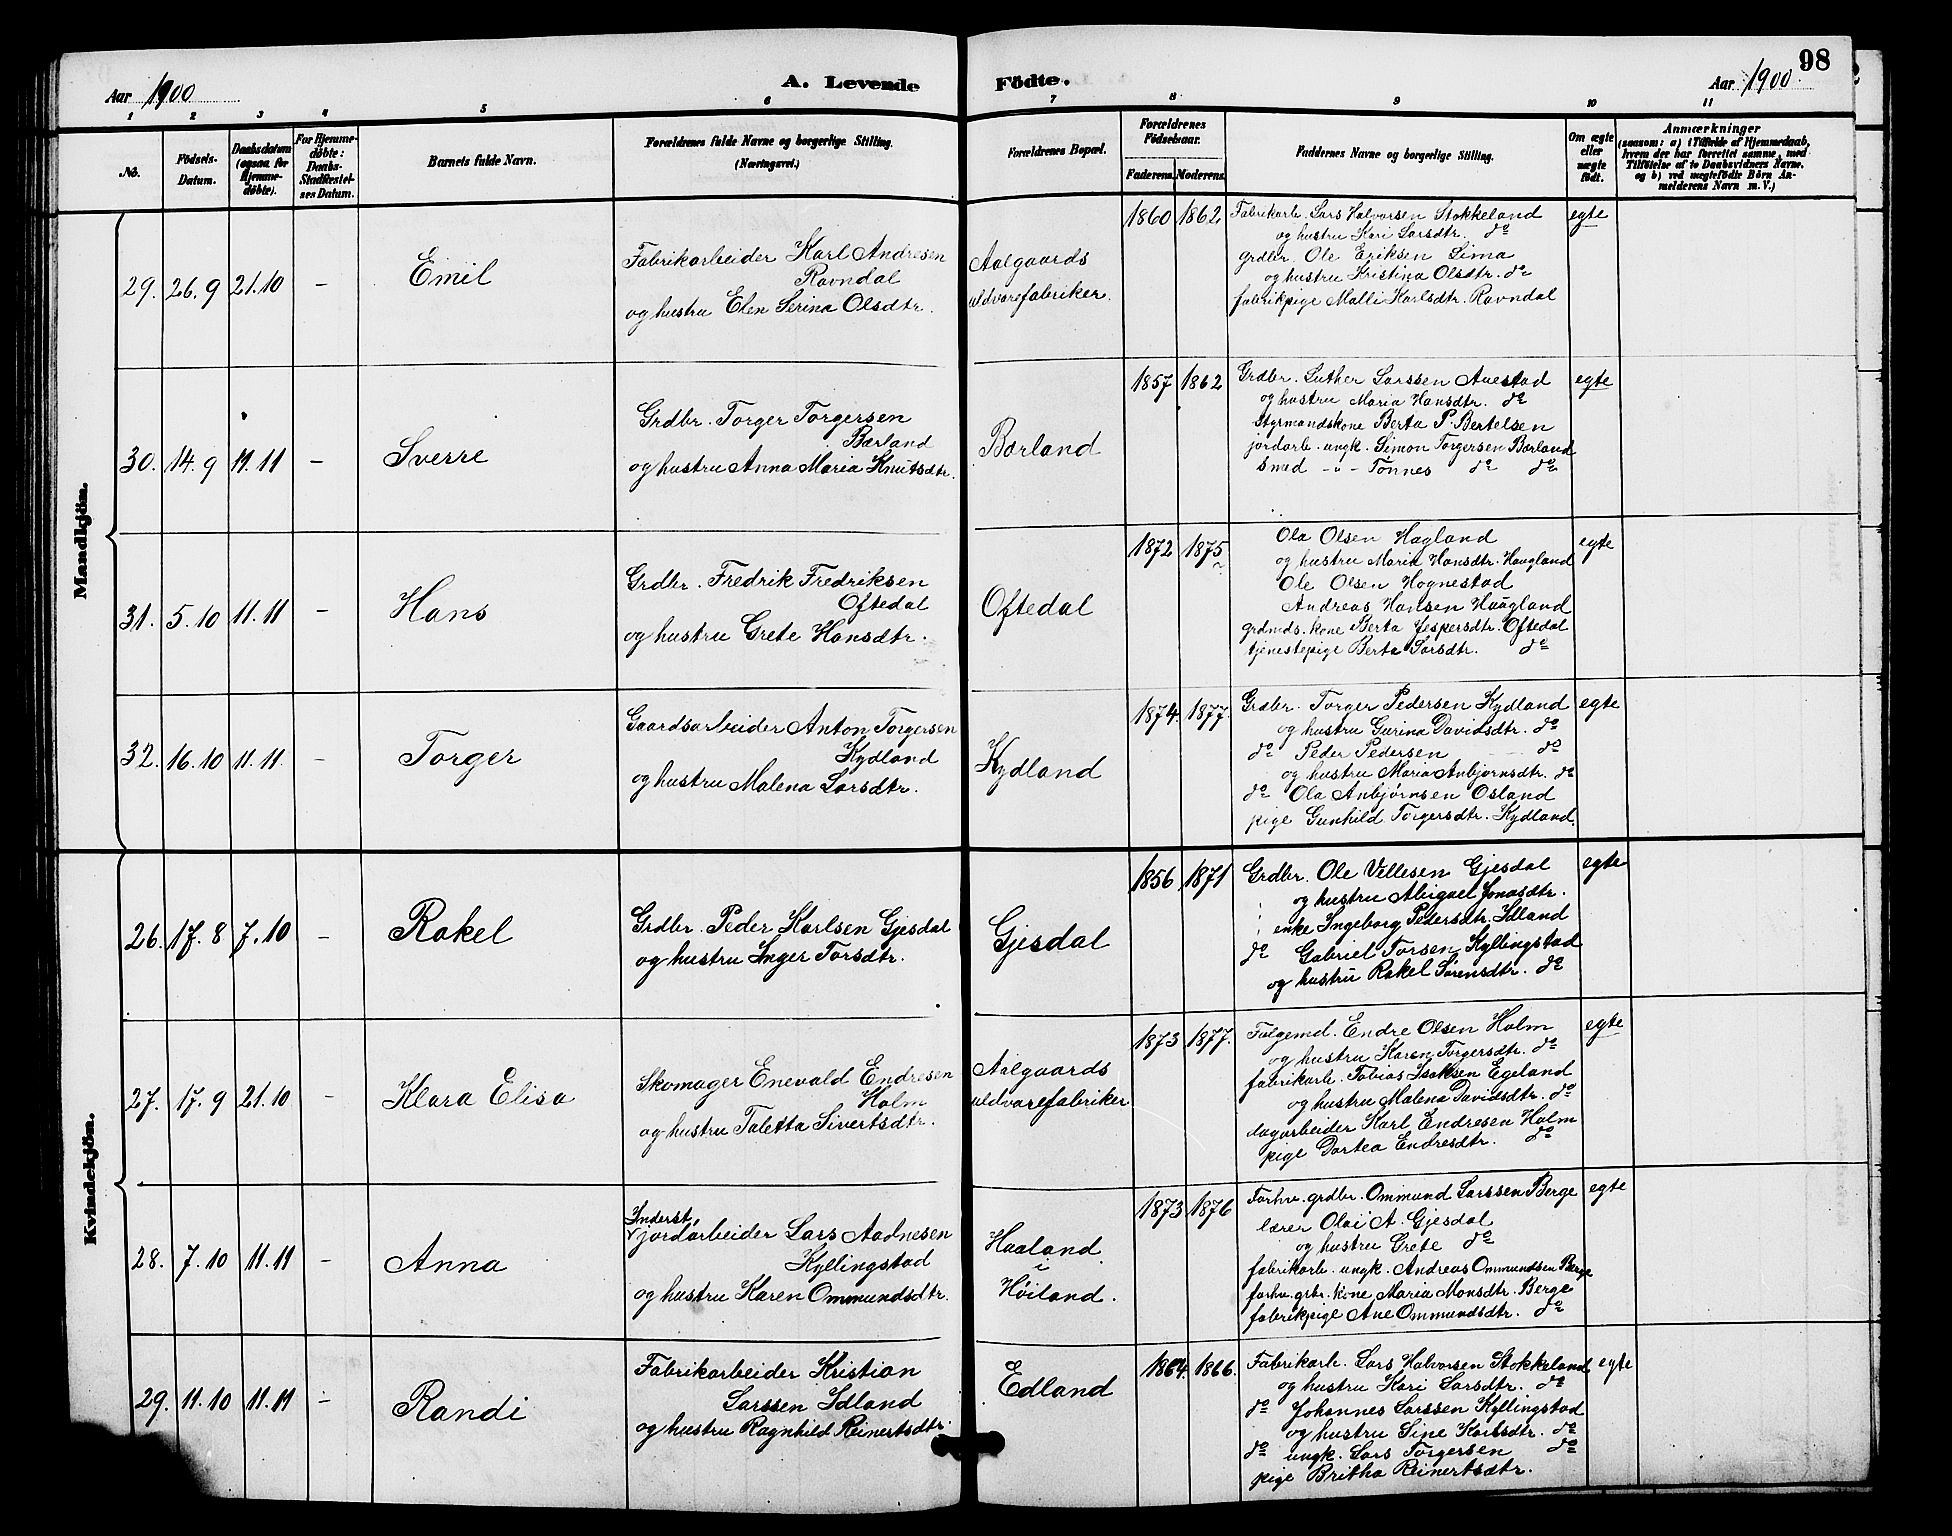 98
Aar 1900
A. Levende Födte.
Aar 1900
1 2 3 4 5 6 7 8 9 10 11
No.
Födsels-
Datum.
Daabsdatum
(ogsaa for
Hjemme-
døbte).
For Hjemme-
døbte:
Daabs-
Stadfæstel-
ses Datum.
Barnets fulde Navn.
Forældrenes fulde Navne og borgerlige Stilling.
(Næringsvei.)
Forældrenes Bopæl.
Forældrenes
Födselsaar.
Faderens. Moderens.
Faddernes Navne og borgerlige Stilling.
Om ægte
eller
uægte
födt.
Anmærkninger
(saasom: a) i Tilfælde af Hjemmedaab,
hvem der har forrettet samme, med
Tilföielse af to Daabsvidners Navne,
og b) ved uægtefödte Börn An-
melderens Navn m. V.)
Mandkjön.
29. 26.9 21.10 – Emil
Fabrikarbeider Karl Andresen
Ravndal
og hustru Elen Serina Olsdtr.
Aalgaards
uldvarefabriker.
1860 1862
Fabrikarb. Lars Halvorsen Stokkeland
og hustru Kari Larsdtr. do
grdbr. Ole Eriksen Lima
og hustru Kristina Olsdtr. do
fabrikpige Malli Karlsdtr. Ravndal
egte
30. 14.9 11.11 – Sverre
Grdbr. Torger Torgersen
Bærland
og hustru Anna Maria Knutsdtr.
Bærland
1857 1862
Grdbr. Luther Larssen Auestad
og hustru Maria Hansdtr. do
styrmandskone Berta P. Bertelsen
jordarb. ungk. Simon Torgersen Bærland
smed -"- Tønnes do do
egte
31. 5.10 11.11 – Hans
Grdbr. Fredrik Fredriksen
Oftedal
og hustru Grete Hansdtr.
Oftedal
1872 1875
Ola Olsen Hagland
og hustru Marik Hansdtr. Haugland
Ole Olsen Hognestad
Andreas Hansen Haugland
grdmds. kone Berta Jespersdtr. Oftedal
tjenestepige Berta Larsdtr. do
egte
32. 16.10 11.11 – Torger
Gaardsarbeider Anton Torgersen
Kydland
og hustru Malena Larsdtr.
Kydland
1874. 1877.
Grdbr. Torger Pedersen Kydland
og hustru Gurina Davidsdtr. do
do Peder Pedersen do
og hustru Maria Anbjørnsdtr. do
do Ola Anbjørnsen Osland
pige Gunhild Torgersdtr. Kydland.
egte
Kvindekjön.
26. 17.8 7.10 – Rakel
Grdbr. Peder Karlsen Gjesdal
og hustru Inger Torsdtr.
Gjesdal
1856 1871
Grdbr. Ole Villesen Gjesdal
og hustru Abigael Jonasdtr.
enke Ingeborg Pedersdtr. Idland
do Gabriel Torsen Kyllingstad
og hustru Rakel Sørensdtr. do
egte
27. 17.9 21.10 – Klara Elisa
Skomager Enevald Endresen
Holm
og hustru Taletta Sivertsdtr.
Aalgaards
uldvarefabriker
1873 1877.
Følgemd. Endre Olsen Holm
og hustru Karen Torgersdtr. do
fabrikarb. Tobias Isaksen Egeland
og hustru Malena Davidsdtr. do
dagarbeider Karl Endresen Holm
pige Dortea Endresdtr. do
egte
28. 7.10 11.11 – Anna
Inderst,
jordarbeider Lars Aadnesen
Kyllingstad
og hustru Karen Ommundsdtr.
Haaland
i
Høiland.
1873 1876
Forhv. grdbr. Ommund Larssen Berge
lærer Olai A. Gjesdal
og hustru Grete do
fabrikarb. ungk. Andreas Ommundsen Berge
forhv. grbr. kone Maria Monsdtr. Berge
fabrikpige Ane Ommundsdtr. do
egte
29. 11.10 11.11 – Randi
Fabrikarbeider Kristian
Larssen Idland
og hustru Ragnhild Reinertsdtr.
Edland
1864. 1866.
Fabrikarb. Lars Halvorsen Stokkeland
og hustru Kari Larsdtr. do
do Johannes Larssen Kyllingstad
og hustru Sine Karlsdtr. do
do ungk. Lars Torgersen do
pige Britha Reinertsdtr.
egte